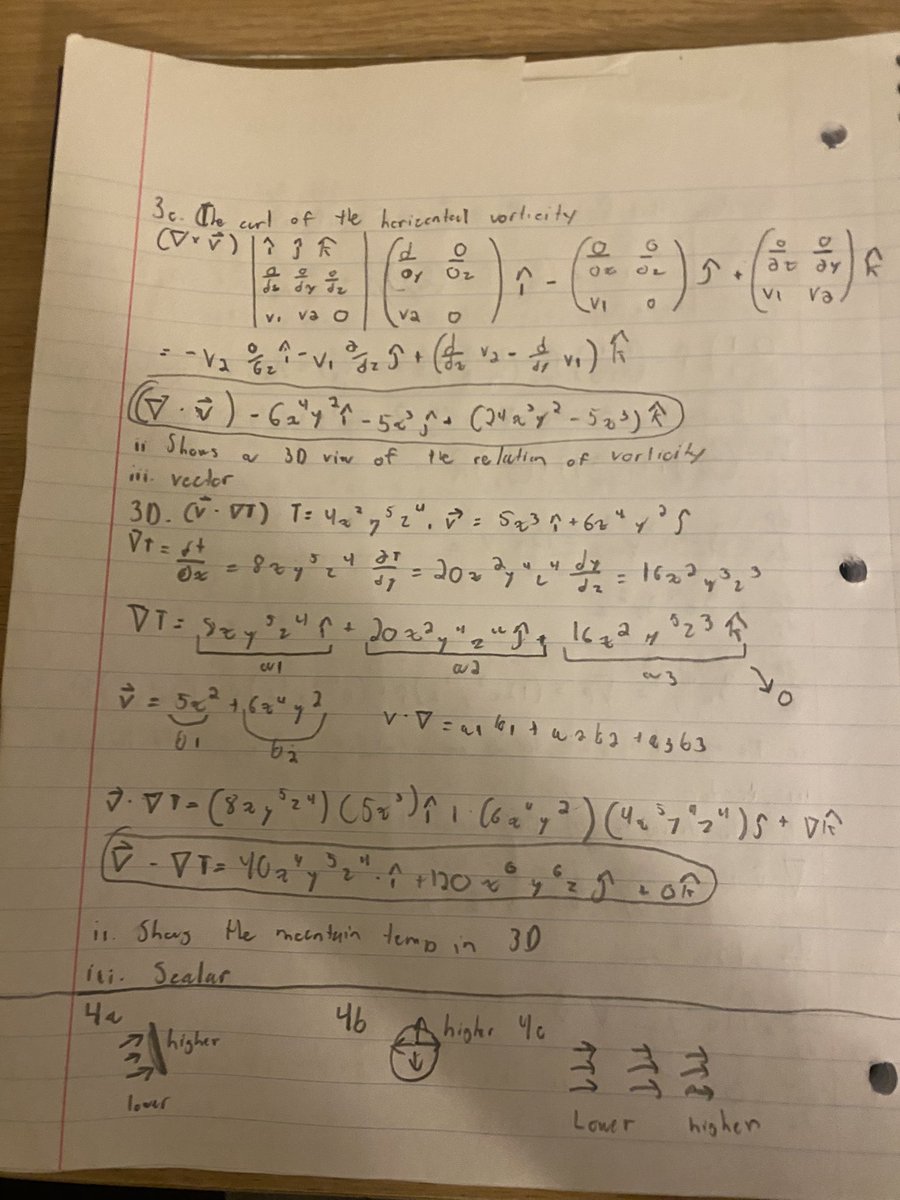 3c. The curl of the horizontal vorticity
(∇×v⃗) |î ĵ k̂| (d/∂y ∂/∂z) î - (∂/∂x ∂/∂z) ĵ + (∂/∂x ∂/∂y) k̂
∂/dx ∂/dy ∂/dz
v1 v2 0 v2 0 v1 0 v1 v2
= -v2 ∂/∂z î - v1 ∂/dz ĵ + (d/dx v2 - d/dy v1) k̂
(∇ · v⃗) - 6x⁴y²î - 5x³ĵ + (24x³y² - 5x³) k̂
ii Shows a 3D view of the relation of vorticity
iii. vector
3D. (v⃗ · ∇T) T = 4x²y⁵z⁴. v⃗ = 5x³ î + 6x⁴y² ĵ
∇T = dt/∂x = 8xy⁵z⁴ ∂T/dy = 20x²y⁴z⁴ dy/dz = 16x²y⁵z³
∇T = 8xy⁵z⁴ î + 20x²y⁴z⁴ ĵ + 16x²y⁵z³ k̂
a1 a2 a3 0
v⃗ = 5x² + 6x⁴y² v · ∇ = a1b1 + a2b2 + a3b3
b1 b2
v⃗ · ∇T = (8xy⁵z⁴)(5x³) î + (6x⁴y²)(4x⁵y⁴z⁴) ĵ + 0k̂
v⃗ - ∇T = 40x⁴y⁵z⁴ · î + 120x⁶y⁶z ĵ + 0k̂
ii. Shows the mountain temp in 3D
iii. Scalar
4a 4b higher 4c
higher
lower Lower higher